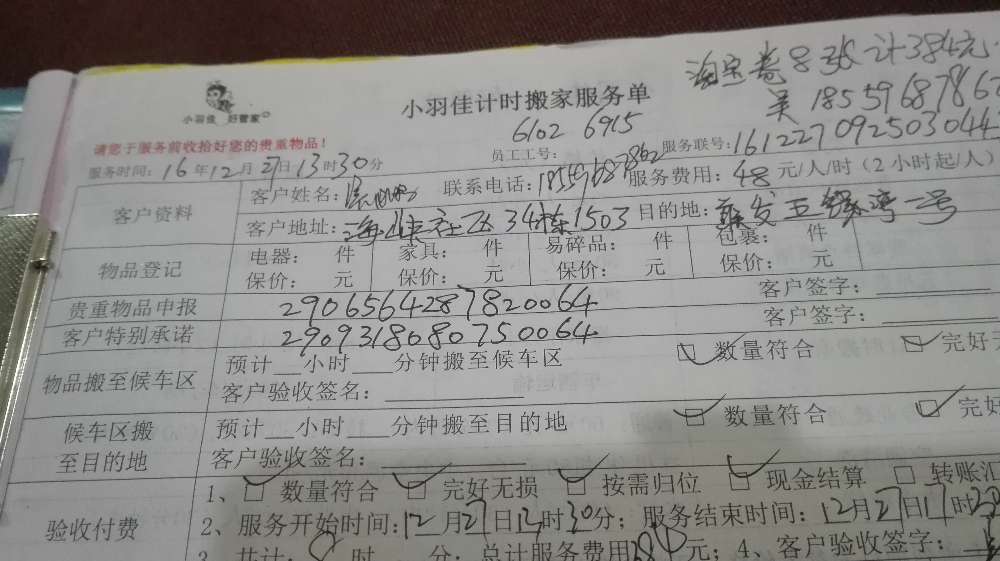 淘宝券8张 计384元
吴 1855968786
小羽佳 好管家
小羽佳计时搬家服务单
6102 6915
请您于服务前收拾好您的贵重物品!
员工工号:
服务联号:161227092503044
服务时间:16年12月27日13时30分
客户资料
客户姓名: 联系电话:18559687862 服务费用:48元/人/时(2小时起/人)
客户地址:海 社区34栋1503 目的地: 发五缘湾一号
物品登记
电器: 件 家具: 件 易碎品: 件 包裹: 件
保价: 元 保价: 元 保价: 元 保价: 元
贵重物品申报 2906564287820064 客户签字:
客户特别承诺 2909318680750064 客户签字:
物品搬至候车区
预计__小时___分钟搬至候车区 数量符合 完好
客户验收签名:
候车区搬至目的地
预计__小时___分钟搬至目的地 数量符合 完好
客户验收签名:
验收付费
1、 数量符合 完好无损 按需归位 现金结算 转账汇
2、服务开始时间:12月27日13时30分;服务结束时间:12月27日17时
3、共计: 时 分;总计服务费用384元;4、客户验收签字: